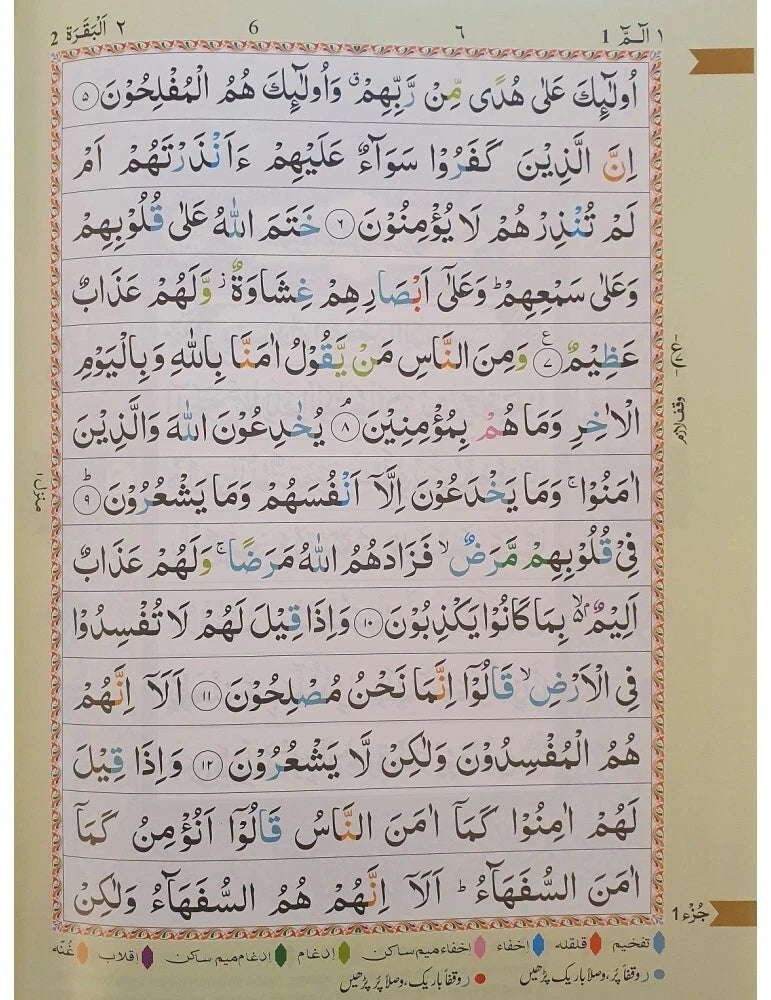 ١ الٓمّٓ 1 ٦ 6 ٢ اَلْبَقَرَة 2
اُولٰٓئِكَ عَلٰى هُدًى مِّنْ رَّبِّهِمْ ۙ وَاُولٰٓئِكَ هُمُ الْمُفْلِحُوْنَ ۝٥
اِنَّ الَّذِيْنَ كَفَرُوْا سَوَآءٌ عَلَيْهِمْ ءَاَنْذَرْتَهُمْ اَمْ
لَمْ تُنْذِرْهُمْ لَا يُؤْمِنُوْنَ ۝٦ خَتَمَ اللّٰهُ عَلٰى قُلُوْبِهِمْ
وَعَلٰى سَمْعِهِمْ ؕ وَعَلٰٓى اَبْصَارِهِمْ غِشَاوَةٌ ز وَّلَهُمْ عَذَابٌ
عَظِيْمٌ ۝٧ ع وَمِنَ النَّاسِ مَنْ يَّقُوْلُ اٰمَنَّا بِاللّٰهِ وَبِالْيَوْمِ
الْاٰخِرِ وَمَا هُمْ بِمُؤْمِنِيْنَ ۝٨ م يُخٰدِعُوْنَ اللّٰهَ وَالَّذِيْنَ
اٰمَنُوْا ۚ وَمَا يَخْدَعُوْنَ اِلَّآ اَنْفُسَهُمْ وَمَا يَشْعُرُوْنَ ؕ ۝٩
فِيْ قُلُوْبِهِمْ مَّرَضٌ ۙ فَزَادَهُمُ اللّٰهُ مَرَضًا ۚ وَلَهُمْ عَذَابٌ
اَلِيْمٌۢ ۙ۬ بِمَا كَانُوْا يَكْذِبُوْنَ ۝١٠ وَاِذَا قِيْلَ لَهُمْ لَا تُفْسِدُوْا
فِى الْاَرْضِ ۙ قَالُوْٓا اِنَّمَا نَحْنُ مُصْلِحُوْنَ ۝١١ اَلَآ اِنَّهُمْ
هُمُ الْمُفْسِدُوْنَ وَلٰكِنْ لَّا يَشْعُرُوْنَ ۝١٢ وَاِذَا قِيْلَ
لَهُمْ اٰمِنُوْا كَمَآ اٰمَنَ النَّاسُ قَالُوْٓا اَنُؤْمِنُ كَمَآ
اٰمَنَ السُّفَهَآءُ ؕ اَلَآ اِنَّهُمْ هُمُ السُّفَهَآءُ وَلٰكِنْ
وقف لازم
منزل ١
جُزْء 1
تفخيم قلقله إخفاء إخفاء ميم ساكن إدغام إدغام ميم ساكن إقلاب غُنّه
ر وقفاً پُر، وصلاً باریک پڑھیں ر وقفاً باریک، وصلاً پُر پڑھیں